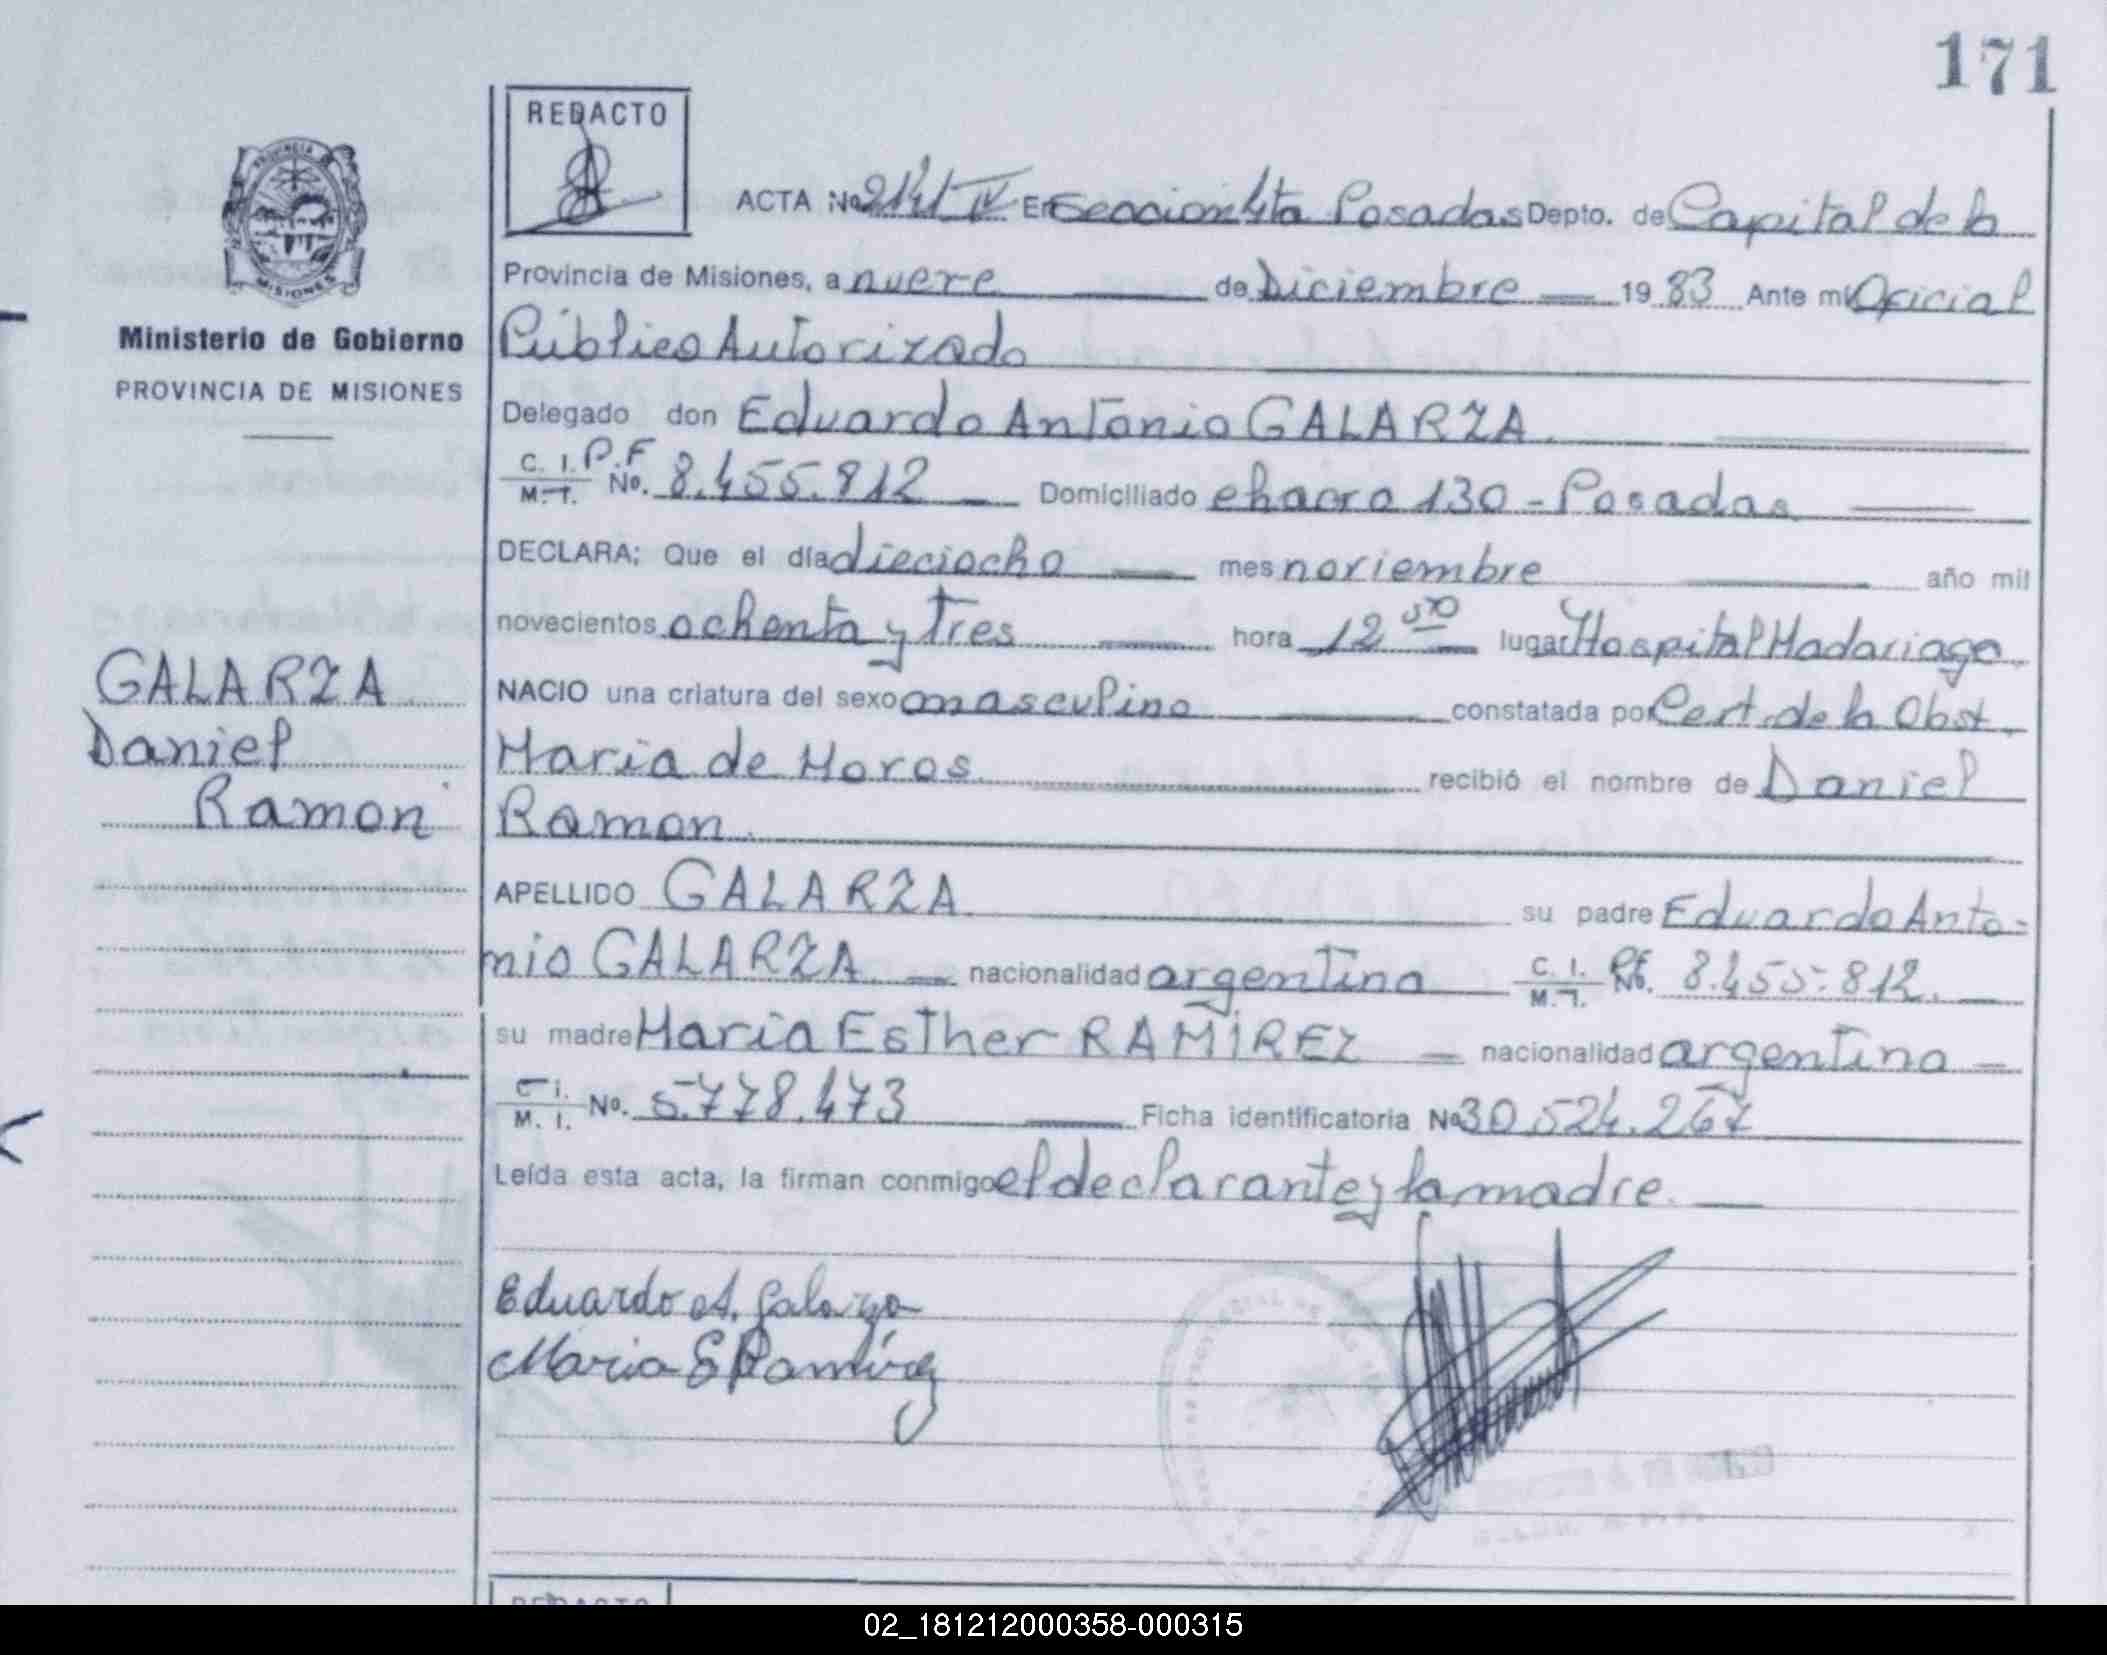 171
REDACTO
ACTA No 2141 IV En Seccion 4ta Posadas Depto. de Capital de la
Provincia de Misiones, a nueve de Diciembre 1983 Ante mi Oficial
Público Autorizado
Delegado don Eduardo Antonio GALARZA
C. I. P.F
M. I. No. 8.455.812 Domiciliado chacra 130 - Posadas
DECLARA: Que el día dieciocho mes noviembre año mil
novecientos ochenta y Tres hora 12 50 lugar Hospital Madariaga
NACIO una criatura del sexo masculino constatada por Cert. de la Obst.
Maria de Moros recibió el nombre de Daniel
Ramon
APELLIDO GALARZA su padre Eduardo Anto-
nio GALARZA nacionalidad argentina C. I. M. I. PF. No. 8.455.812
su madre Maria Esther RAMIREZ nacionalidad argentina
C. I. M. I. No. 5.778.473 Ficha identificatoria No 30.524.267
Leída esta acta, la firman conmigo el declarante y la madre.
Eduardo A. Galarza
Maria E Ramírez
PROVINCIA
MISIONES
Ministerio de Gobierno
PROVINCIA DE MISIONES
GALARZA
Daniel
Ramon
REDACTO
02_181212000358-000315